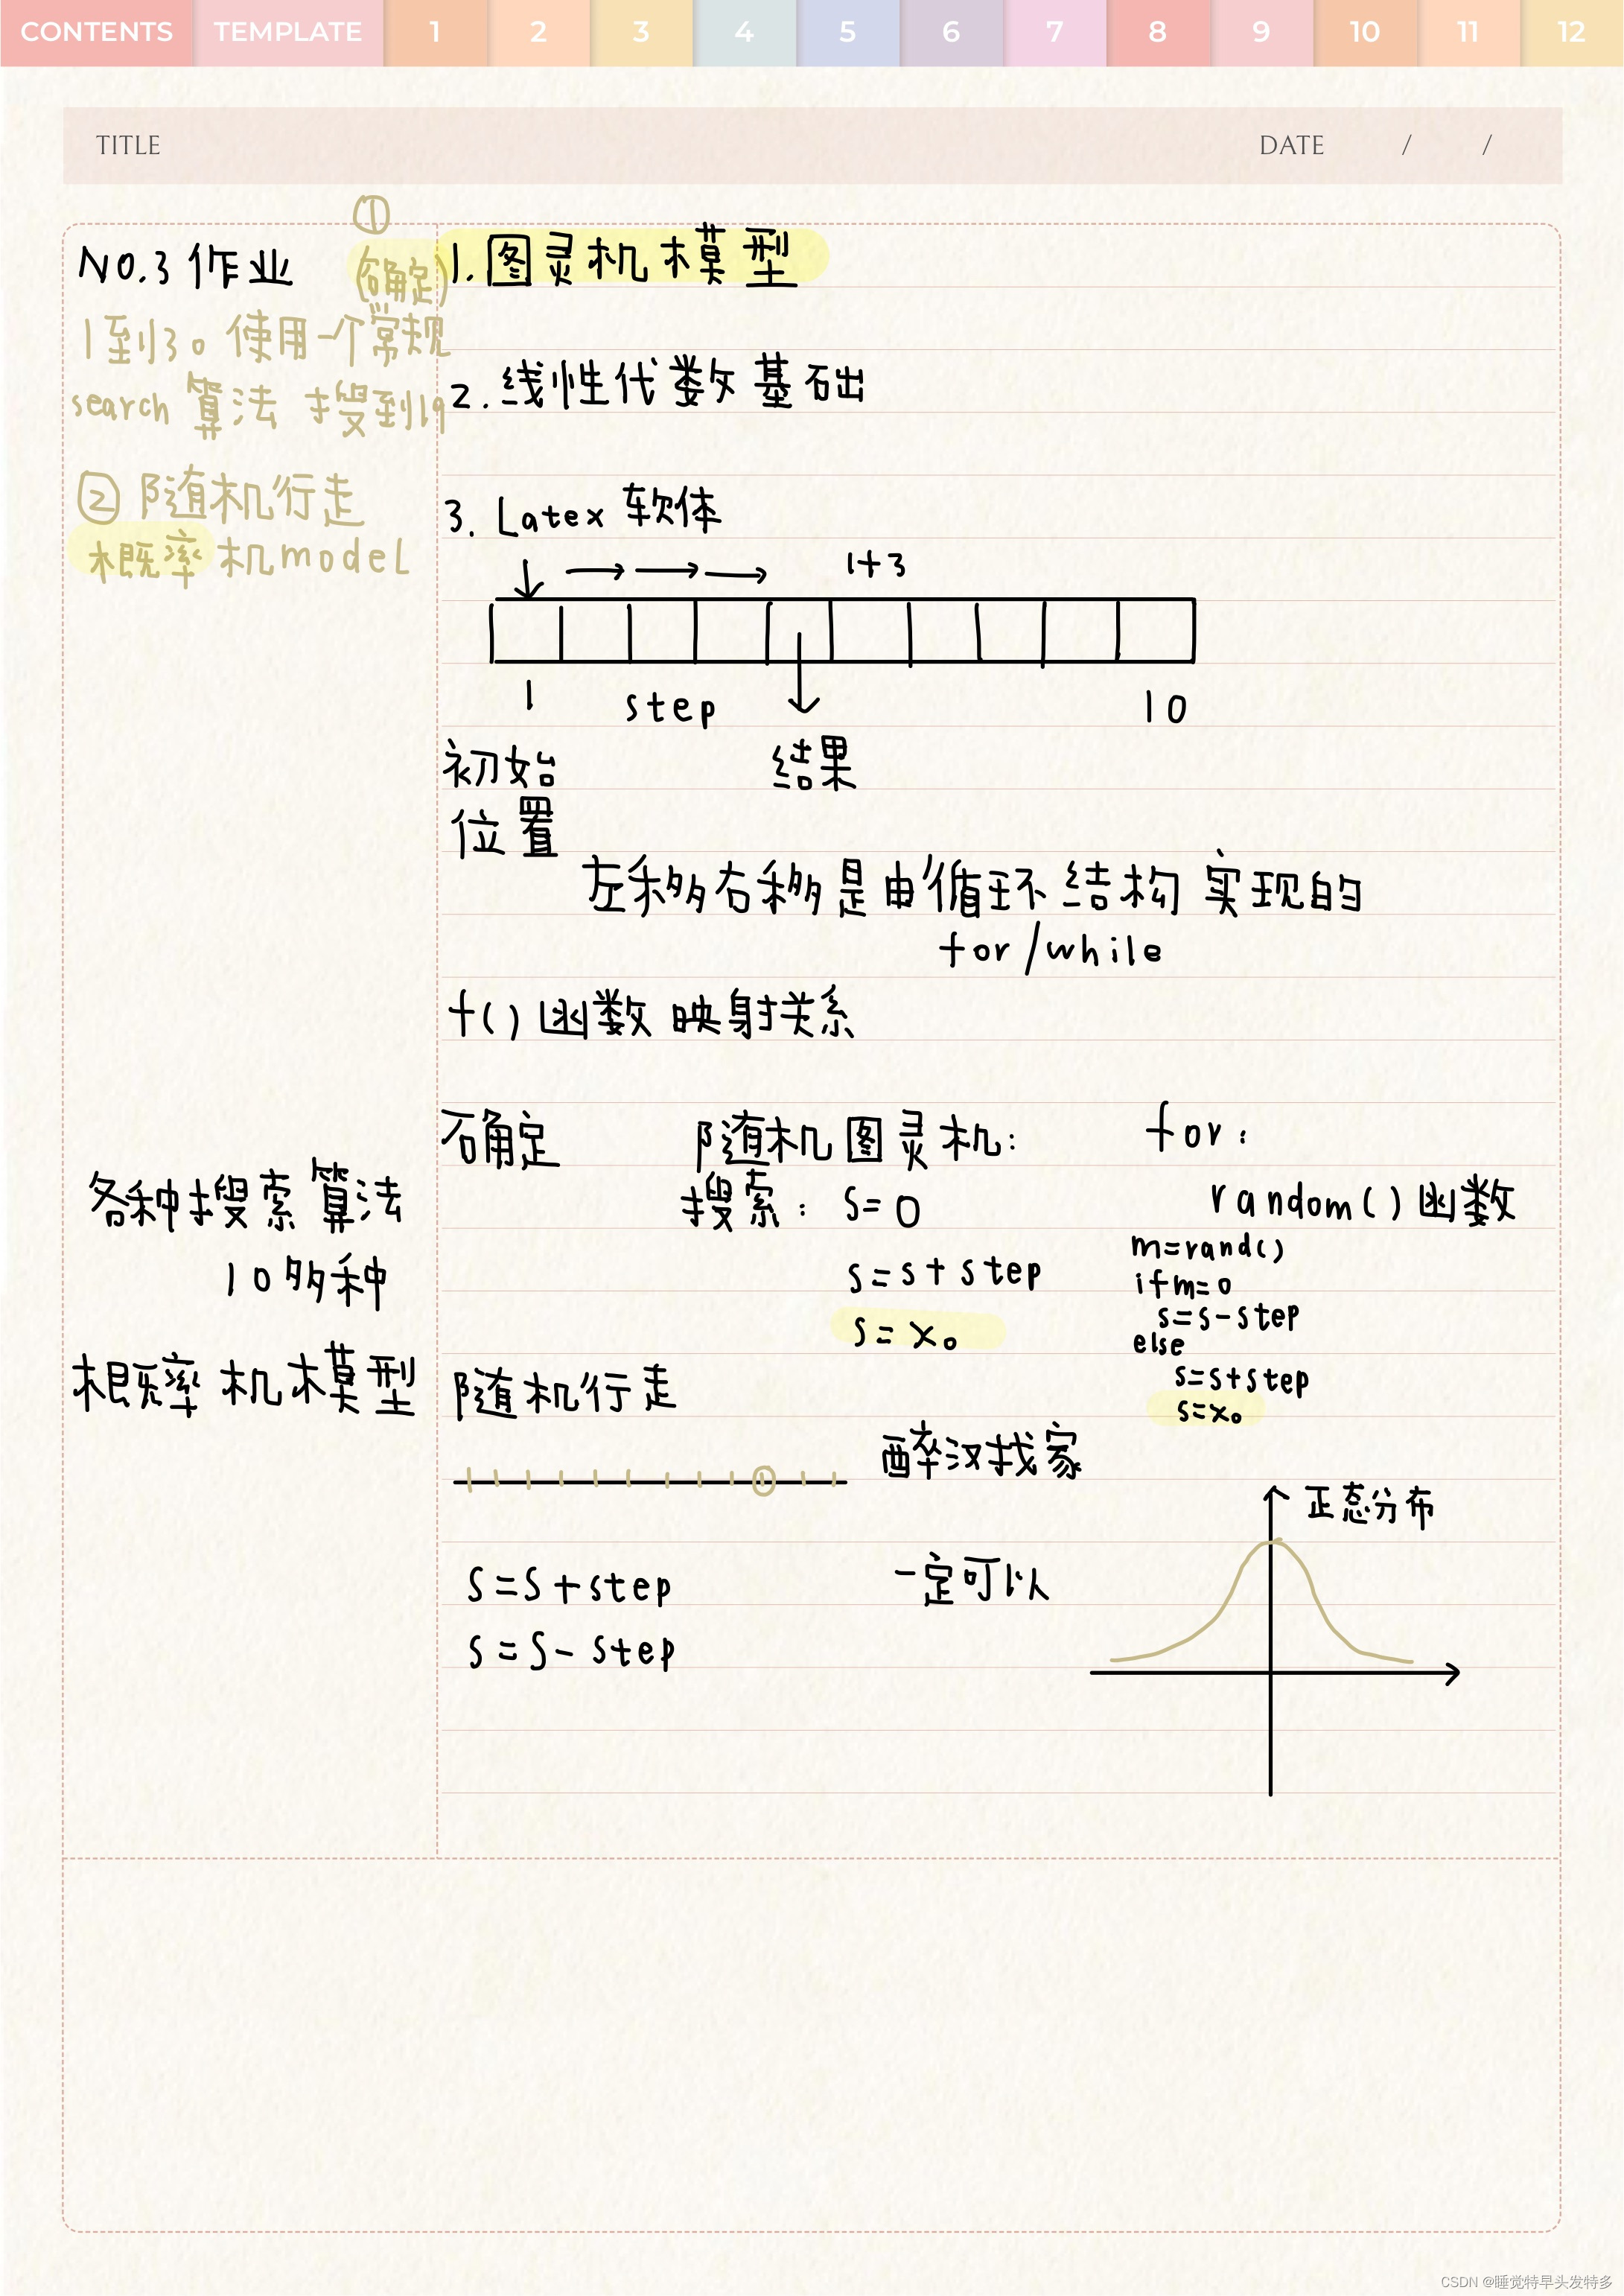 CONTENTS TEMPLATE 1 2 3 4 5 6 7 8 9 10 11 12
TITLE DATE / /
NO.3 作业
①
(确定)
1到30 使用一个常规
search 算法 搜到19
② 随机行走
概率机model
各种搜索算法
10多种
概率机模型
1.图灵机模型
2.线性代数基础
3. Latex 软体
1+3
1 step 10
初始 结果
位置
左移右移是由循环结构实现的
for/while
f()函数 映射关系
确定 随机图灵机: for:
搜索: S=0 random()函数
s=s+step
s=x₀
m=rand()
if m=0
s=s-step
else
s=s+step
s=x₀
随机行走
醉汉找家
正态分布
S=S+step 一定可以
S=S-step
CSDN @睡觉特早头发特多